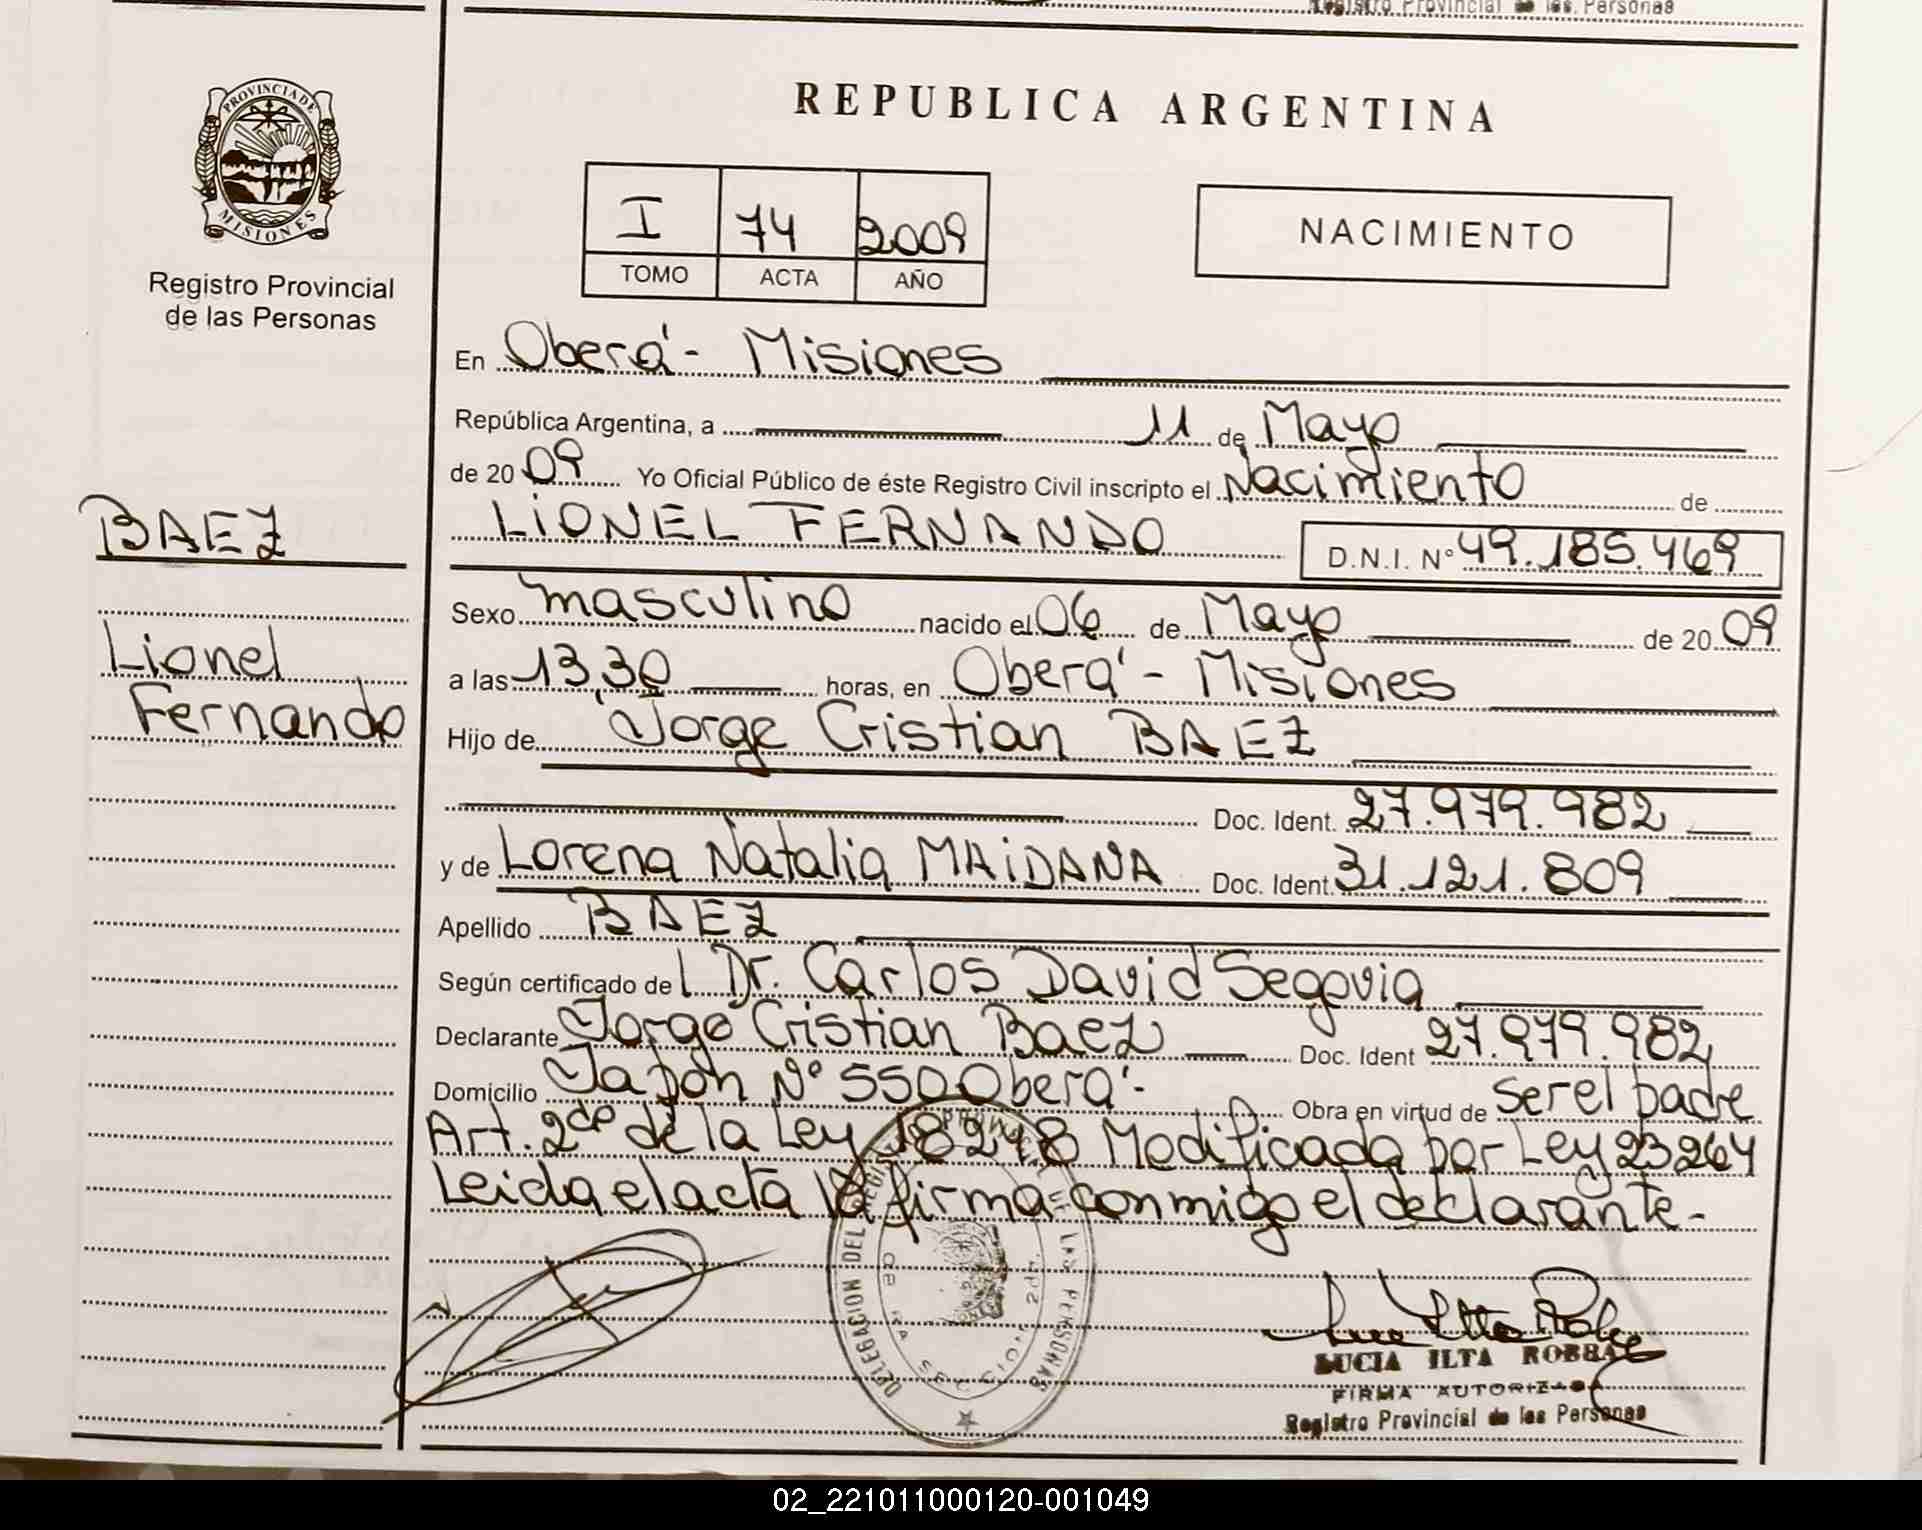 Registro Provincial de las Personas
PROVINCIA DE
MISIONES
Registro Provincial
de las Personas
REPUBLICA ARGENTINA
I 74 2009
TOMO ACTA AÑO
NACIMIENTO
En Oberá - Misiones
República Argentina, a 11 de Mayo
de 20 09 Yo Oficial Público de éste Registro Civil inscripto el Nacimiento de
BAEZ
LIONEL FERNANDO D.N.I. Nº 49.185.469
Sexo masculino nacido el 06 de Mayo de 20 09
Lionel
Fernando
a las 13,30 horas, en Oberá - Misiones
Hijo de Jorge Cristian BAEZ
Doc. Ident. 27.979.982
y de Lorena Natalia MAIDANA Doc. Ident. 31.121.809
Apellido BAEZ
Según certificado del Dr. Carlos David Segovia
Declarante Jorge Cristian Baez Doc. Ident 27.979.982
Domicilio Japón Nº 550 Oberá - Obra en virtud de ser el padre
Art. 2do de la Ley 18248 Modificada por Ley 23264
Leida el acta la firma conmigo el declarante -
DELEGACION DEL REGISTRO PROVINCIAL DE LAS PERSONAS
OBERA SECCION 2da.
LUCIA ILTA
FIRMA AUTORIZADA
Registro Provincial de las Personas
02_221011000120-001049